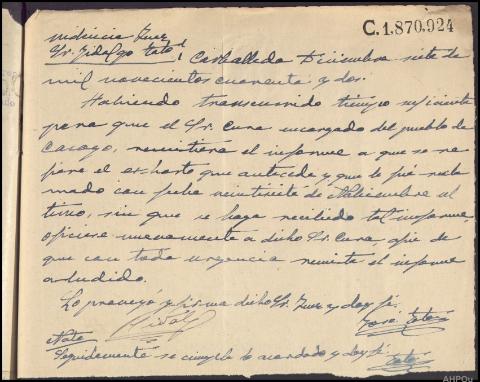 C.1.870.924
Providencia Juez
Sr. Fidalgo Carballeda Diciembre siete de
mil novecientos cuarenta y dos.
Habiendo transcurrido tiempo suficiente
para que el Sr. Cura encargado del pueblo de
remitiera el informe a que se re
fiere el exhorto que antecede y que le fué recla
mado con fecha veintisiete de Nobiembre ul
timo, sin que se haya recibido tal informe,
oficiese nuevamente a dicho Sr. Cura, afin de
que con toda urgencia remita el informe
aludido.
Lo proveyó y firma dicho Sr. Juez y doy fé.
Fidalgo
José
Nota
Seguidamente se cumple lo acordado y doy fé.
AHPOu